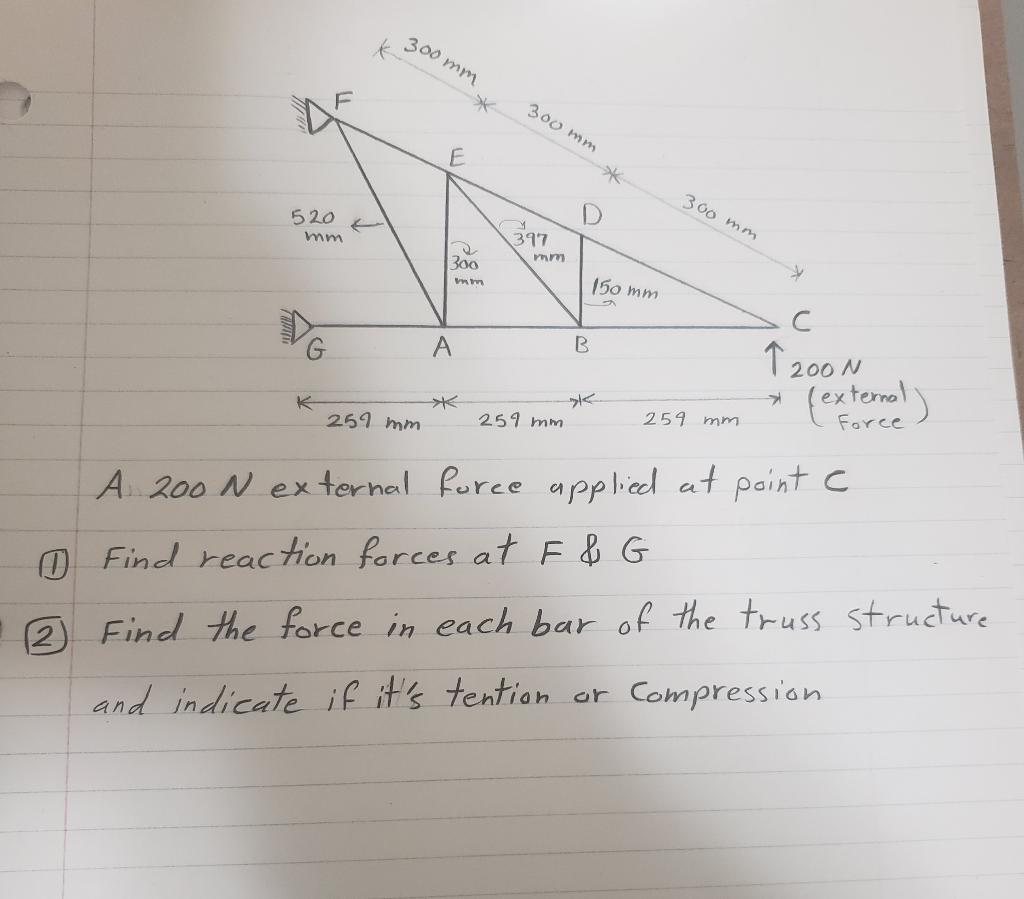 300 mm
300 mm
300 mm
F
E
D
520 mm
397 mm
300 mm
150 mm
C
G
A
B
200 N
(external Force)
259 mm
259 mm
259 mm
A 200 N external force applied at point C
① Find reaction forces at F & G
② Find the force in each bar of the truss structure
and indicate if it's tention or Compression